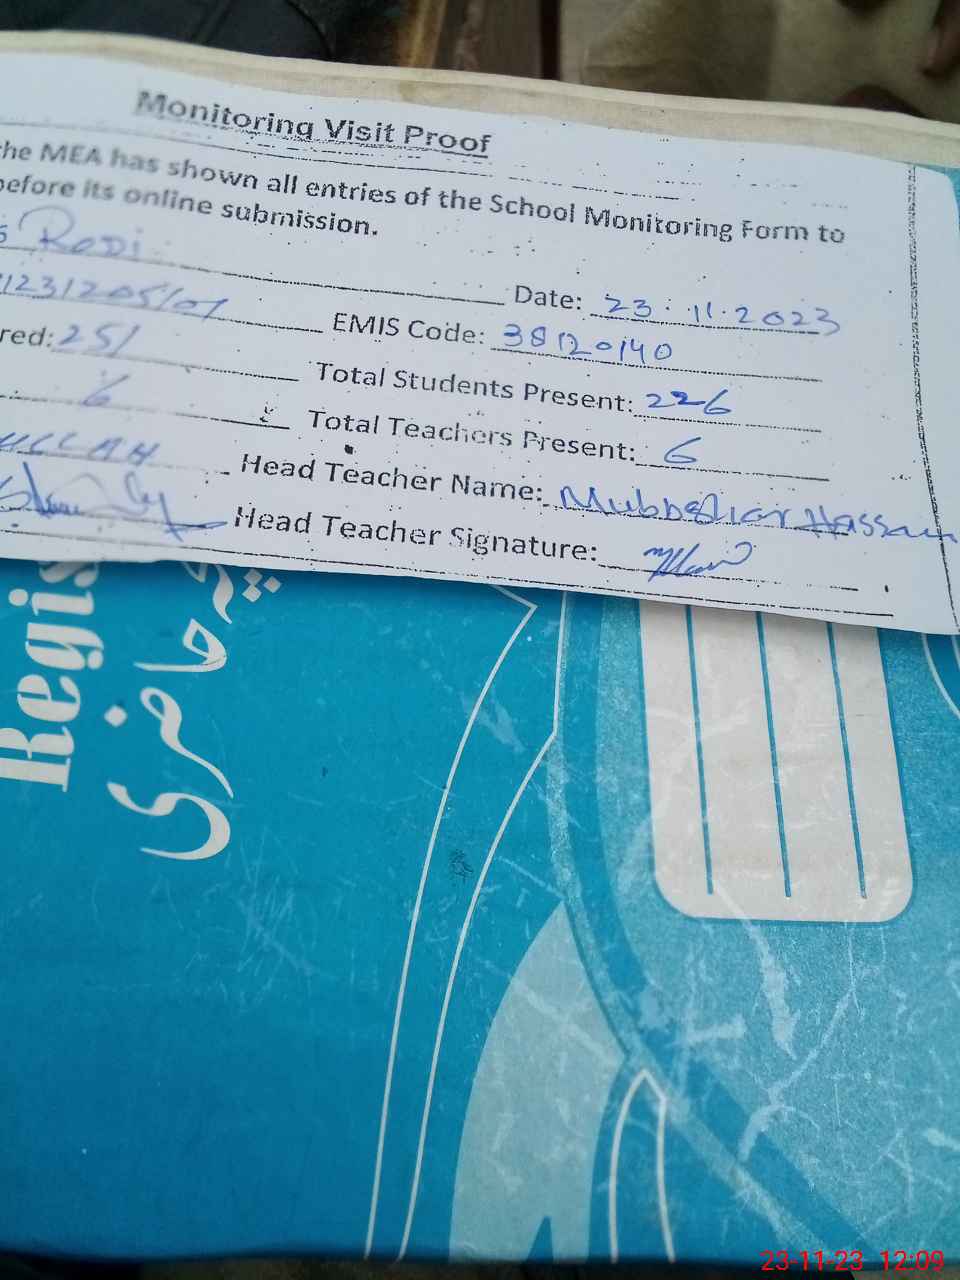 Monitoring Visit Proof
the MEA has shown all entries of the School Monitoring Form to
before its online submission.
Rodi Date: 23.11.2023
1231205/07 EMIS Code: 38120140
red: 251 Total Students Present: 226
6 Total Teachers Present: 6
ULLAH Head Teacher Name: Mubbshar Hassan
Head Teacher Signature:
Regis
حاضری
23-11-23 12:09